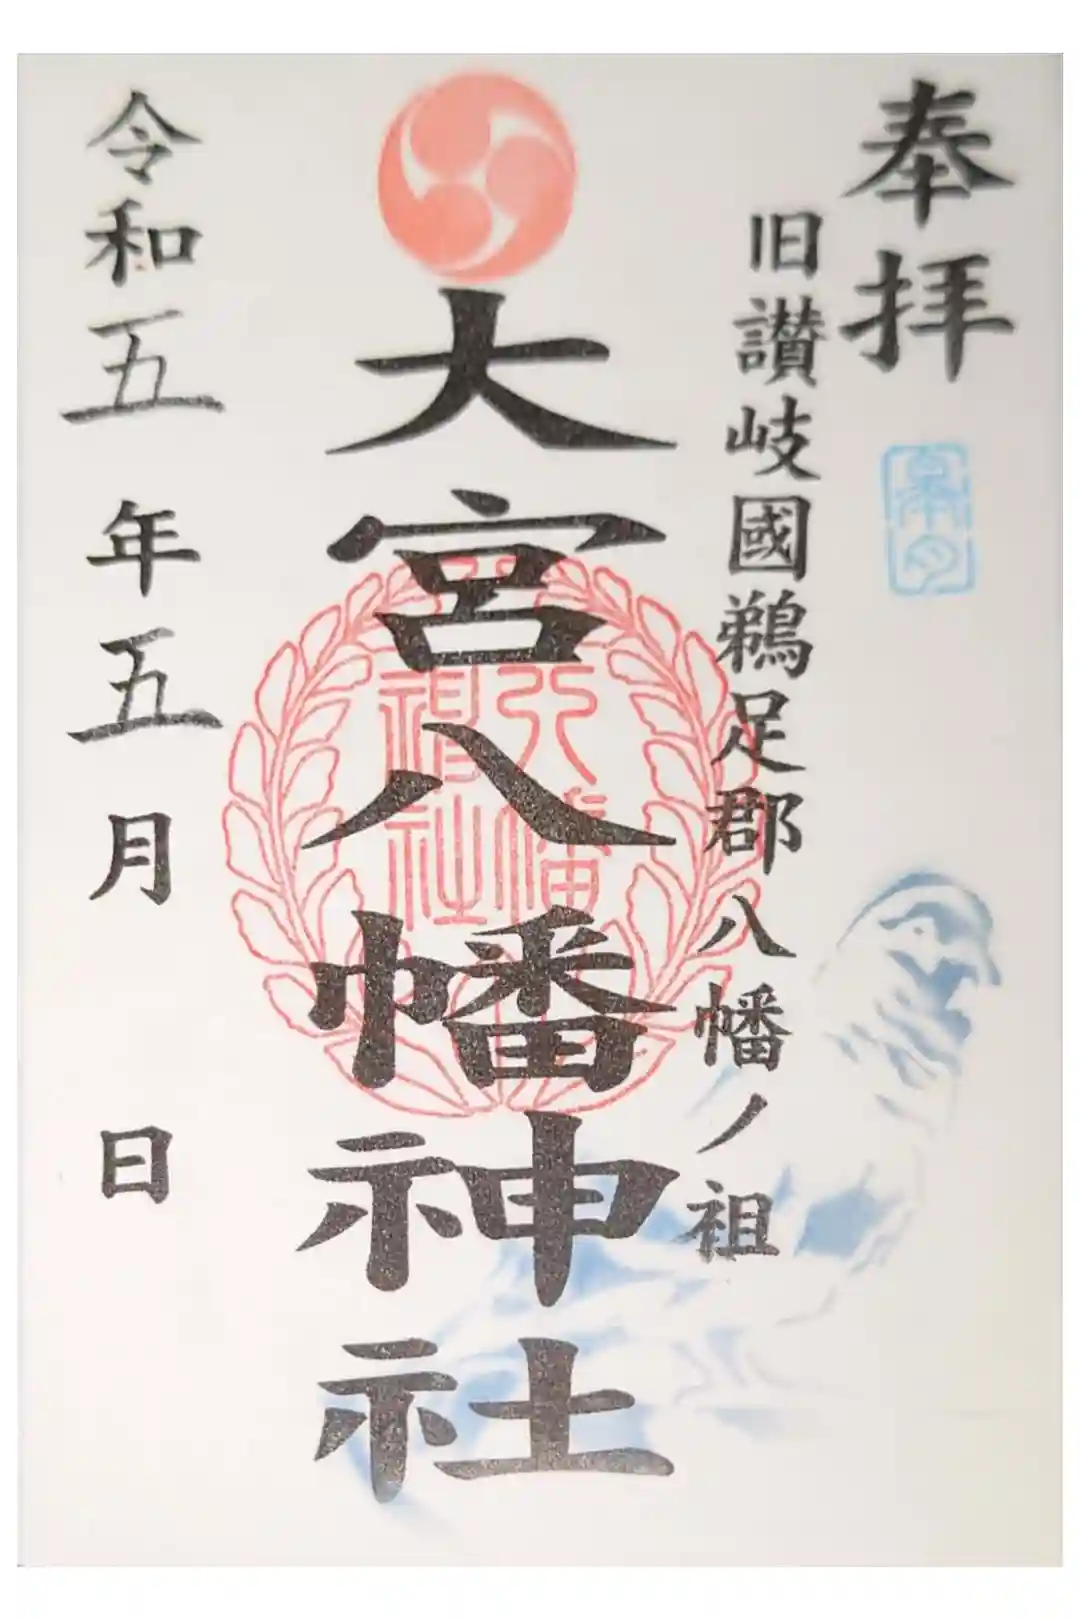 奉拝
皐月
旧讃岐國鵜足郡八幡ノ祖
大宮八幡神社
八幡神社
令和五年五月 日